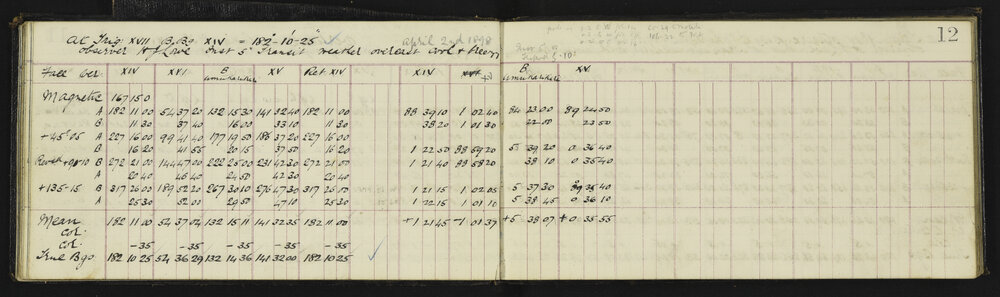 At Trig: XVII B.Bg XIV = 182°-10'-25" April 2nd 1898 12
Observer H J Lowe Inst 5" Transit weather overcast cool &
Face Ver. XIV XVI B XV Ret XIV XIV B XV
Magnetic 167 15 0
A 182 11 00 54 37 20 132 15 30 141 32 40 182 11 00 88 39 10 1 02 40 84 23 00 89 24 50
B 11 30 37 40 16 00 33 10 11 30 38 20 1 01 30 22 00 23 50
+45°05 A 227 16 00 99 41 40 177 19 50 186 37 20 227 16 00
B 16 20 41 55 20 15 37 50 16 20 1 22 50 88 59 20 5 39 20 0 36 40
+90 10 B 272 21 00 144 47 00 222 25 00 231 42 30 272 21 00 1 21 40 88 58 20 38 10 0 35 40
A 20 40 46 40 24 50 42 30 20 40
+135-15 B 317 26 00 189 52 20 267 30 10 276 47 30 317 26 00 1 21 15 1 02 05 5 37 30 35 40
A 25 30 52 00 29 50 47 10 25 30 1 22 15 1 01 10 5 38 45 0 36 10
Mean 182 11 00 54 37 04 132 15 11 141 32 35 182 11 00 +1 21 45 -1 01 37 +5 38 07 +0 35 55
Col:
Col: -35 -35 -35 -35 -35
True Bgo 182 10 25 54 36 29 132 14 36 141 32 00 182 10 25